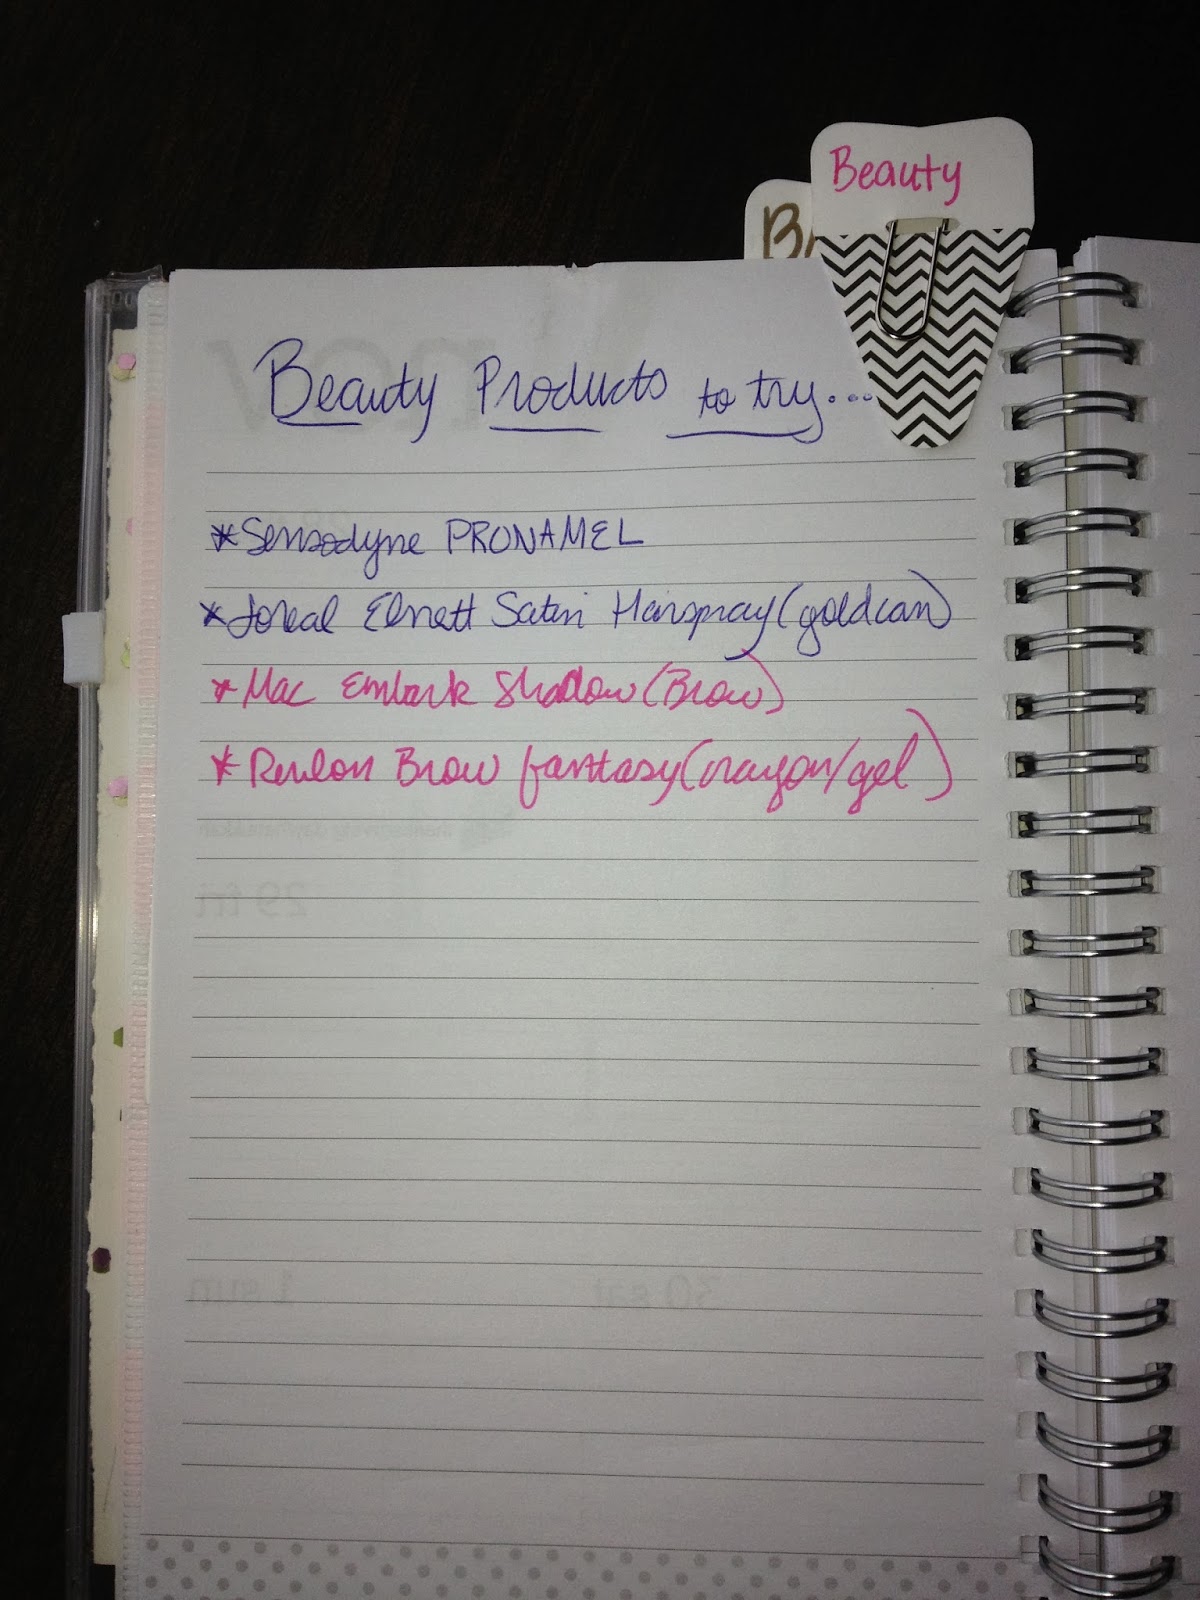 Beauty
B
Beauty Products to try...
*Sensodyne PRONAMEL
*Loreal Elnett Satin Hairspray (gold can)
*Mac Embark Shadow (Brow)
*Revlon Brow fantasy (crayon/gel)
29 fri
30 sat
1 sun